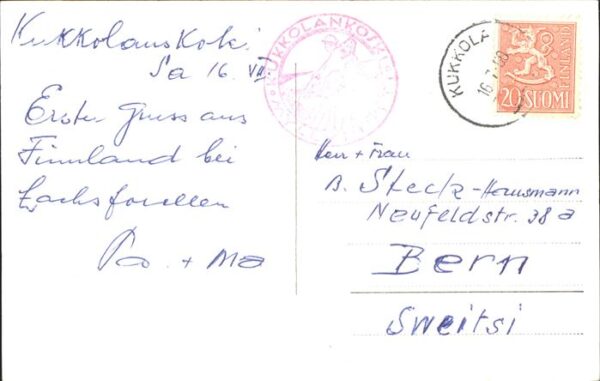 Kukkolankoski
Sa 16. VII
Erster Gruss aus
Finnland bei
Lachsforellen
Pa + Ma
KUKKOLANKOSKI
KUKKOLA
16.7.60
20 SUOMI
FINLAND
Herr + Frau
B. Steck-Hausmann
Neufeldstr. 38a
Bern
Sweitsi